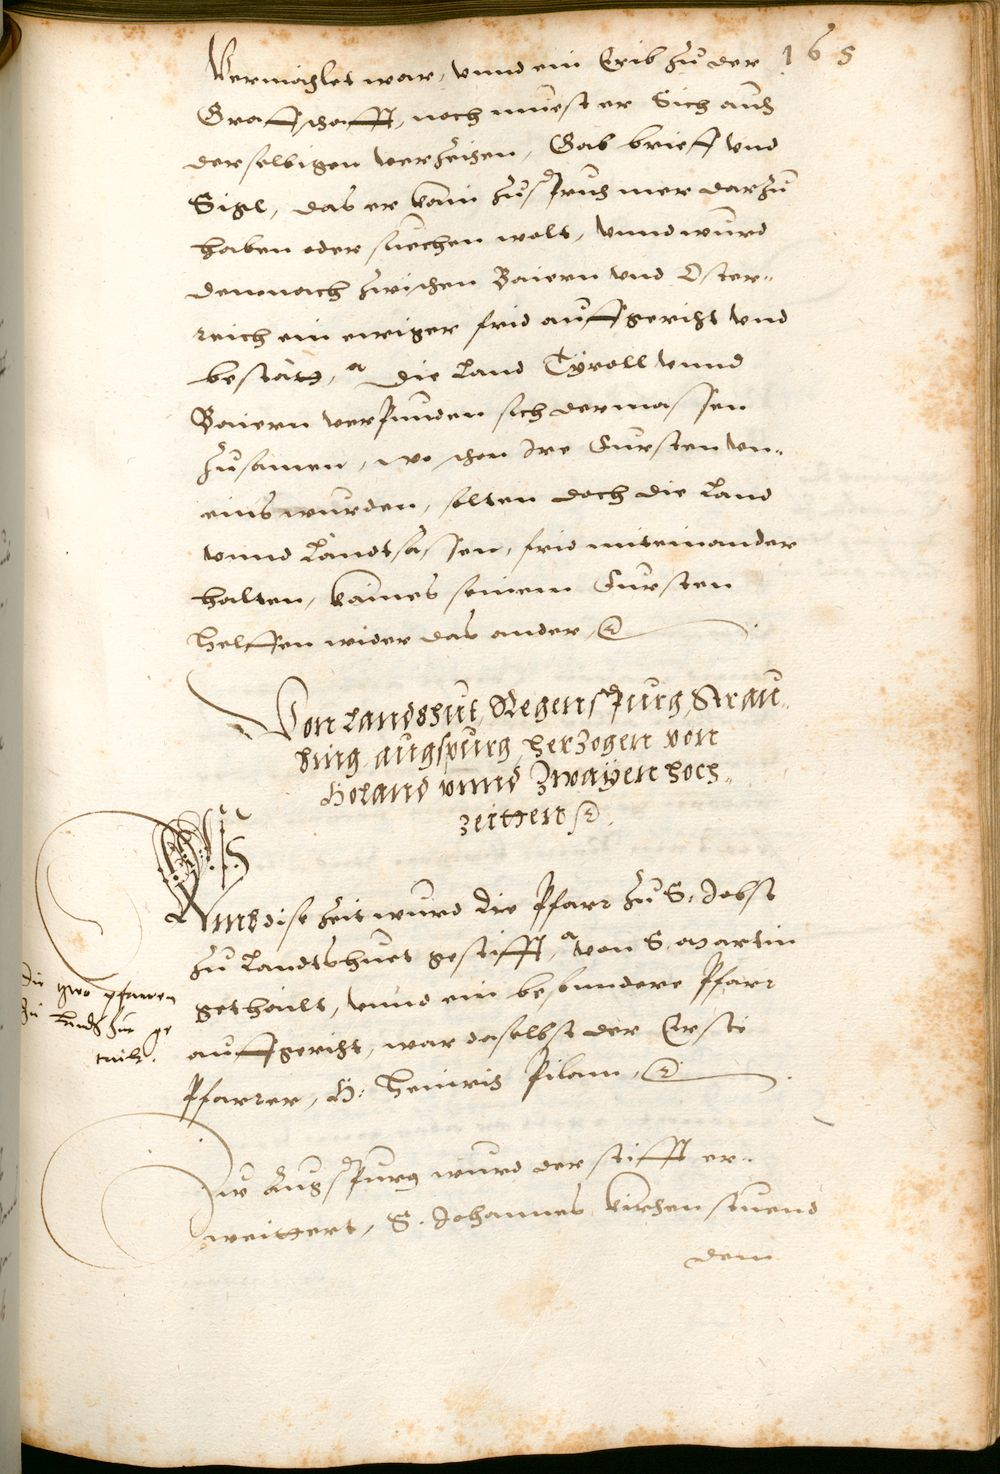 165
Vermáhlet war, vnnd ein Erib zu der
Graffschafft, noch muest er Sich auch
derselbigen verzeihen, Gab brieff vnd
Sigl, das er kain zuspruch mer darzu
haben oder suechen wolt, Vnnd wurd
demnach zwischen Baiern vnd Oster-
reich ein ewiger frid auffgericht vnd
bestátt, Die Land Tyroll vnnd
Baiern verpunden sich dermassen
zusamen, wo schon Ire Fursten vn-
eins wurden, solten doch die Land
vnnd Landtsássen, frid miteinander
halten, kaines seinem Fursten
helffen wider das ander,
Von Landshut, Regenspurg, Strau-
bing augspurg, hertzogen von
Holand vnnd Zwayen hoch-
zeitten
Umb dise zeit wurd die Pfarr zu S. Jobst
zu Landtshuet gestifft, von S. Martin
gethailt, vnnd ein besundere Pfarr
auffgericht, war daselbst der Erste
Pfarrer, H: Heinrich Pilam,
Die zwo pfarren
zu Landshut ge
tailt.
Zw Augspurg wurd der stifft er-
weittert, S. Johannes Kirchen stuend
dem